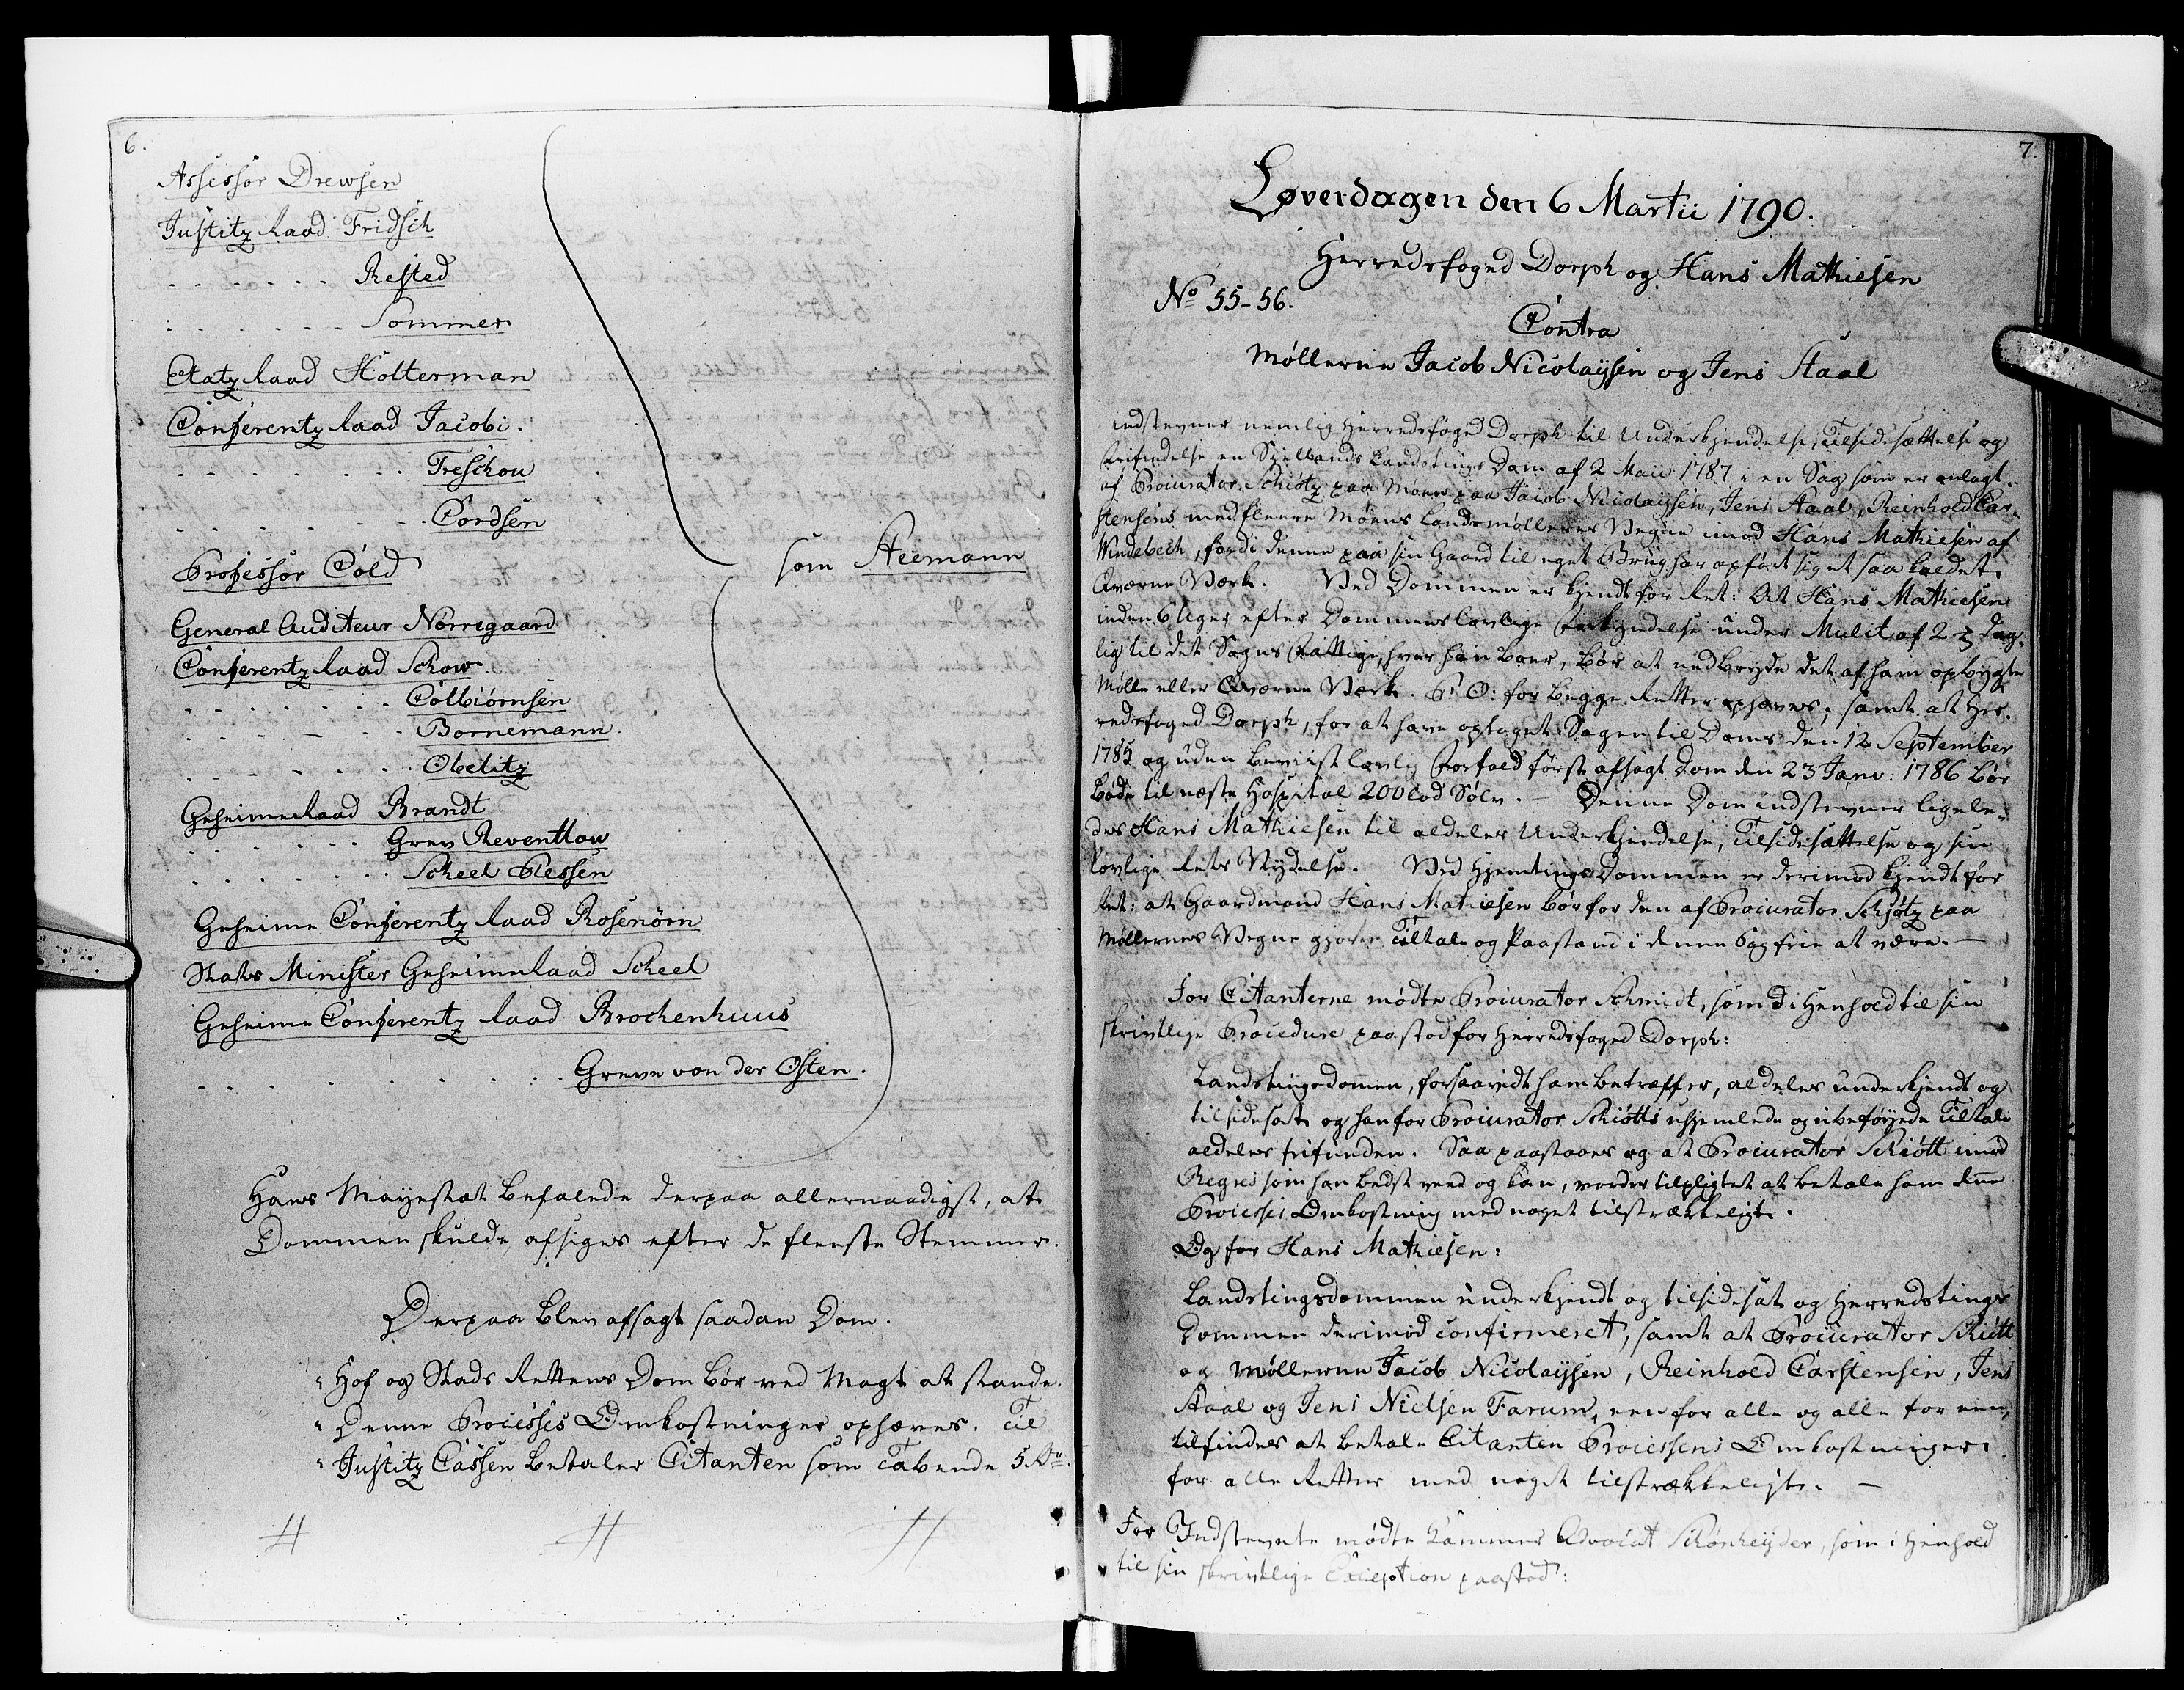 6.
Assessor Drewsen
Justitz Raad Fridsch
. . . . . . . Rested
. . . . . . . Sommer
Etatz Raad Holterman
Conferentz Raad Jacobi.
. . . . . . . Treschou
. . . . . . . Cordsen
Professor Cold
som Aeemann
General Auditeur Nørregaard
Conferentz Raad Schow.
. . . . . . . Colbiørnsen
. . . . . . . Bornemann.
. . . . . . . Obelitz
Geheimeraad Brandt
. . . . . . . Grev Reventlow
. . . . . . . Scheel Plessen
Geheime Conferentz Raad Rosenørn
Stats Minister Geheimeraad Scheel
Geheime Conferentz Raad Brockenhuus
. . . . . . . Greve von der Osten.
Hans Mayestæt befalede derpaa allernaadigst, at
Dommen skulde afsiges efter de fleeste Stemmer.
Derpaa blev afsagt saadan Dom.
" Hof og Stads Rettens Dom bør ved Magt at stande.
" Denne Processes Omkostninger ophæves. Til
" Justitz Cassen betaler Citanten som tabende 5 Rdr.
7.
Løverdagen den 6 Martii 1790.
Herredsfoged Dorph og Hans Mathiesen
No 55-56.
Contra
Møllerne Jacob Nicolaysen og Jens Staal
indstevner nemlig Herredsfoged Dorph til Underkjendelse, Tilsidesættelse og
Frifindelse en Siellands Landstings Dom af 2 Maii 1787 i en Sag som er anlagt
af Procurator Schiøtz paa Møen paa Jacob Nicolaysen, Jens Staal, Reinhold Car-
stensens med fleere Møens Landsmølleres Vegne imod Hans Mathiesen af
Windebech, fordi denne paa sin Gaard til eget Brug har opført sig et saa kaldet
Qværne Værk. Ved Dommen er kjendt for Ret: At Hans Mathiesen
inden 6 Uger efter Dommens lovlige Forkyndelse under Mulct af 2 ℳ dag-
lig til det Sogns Fattige, hvor han boer, bør at nedbryde det af ham opbygte
Mølle eller Qværne Værk. P: O: for begge Retter ophæves; samt at Her-
redsfoged Dorph, for at have optaget Sagen til Doms den 12 September
1785 og uden beviist lovlig Forfald først afsagt Dom den 23 Janv: 1786 bør
bøde til næste Hospital 200 Lod Sølv. — Denne Dom indstevner ligele-
des Hans Mathiesen til aldeles Underkjendelse, Tilsidesættelse og sin
lovlige Rets Nydelse. Ved Hjemtings Dommen er derimod kjendt for
Ret: at Gaardmand Hans Mathiesen bør for den af Procurator Schjøtz paa
Møllernes Vegne gjorte Tiltale og Paastand i denne Sag frie at være. —
For Citanterne mødte Procurator Schmidt, som i Henhold til sin
skrivtlige Procedure paastod for Herredsfoged Dorph:
Landstingsdommen, forsaavidt ham betræffer, aldeles underkjendt og
tilsidesat og han for Procurator Schiøtts uhjemlede og ubeføyede Tiltale
aldeles frifunden. Saa paastaaes og at Procurator Schiøtt imod
Regres som han bedst veed og kan, vorder tilpligtet at betale ham denne
Processes Omkostning med noget tilstrækkeligt.
Og for Hans Mathiesen:
Landstingsdommen underkjendt og tilsidesat og Herredstings
Dommen derimod confirmeret, samt at Procurator Schiøtt
og Møllerne Jacob Nicolaysen, Reinhold Carstensen, Jens
Staal og Jens Nielsen Farum, een for alle og alle for een,
tilfindes at betale Citanten Processens Omkostninger
for alle Retter med noget tilstrækkeligt. —
For Indstevnte mødte Kammer Advocat Schønheyder, som i Henhold
til sin skrivtlige Exception paastod: